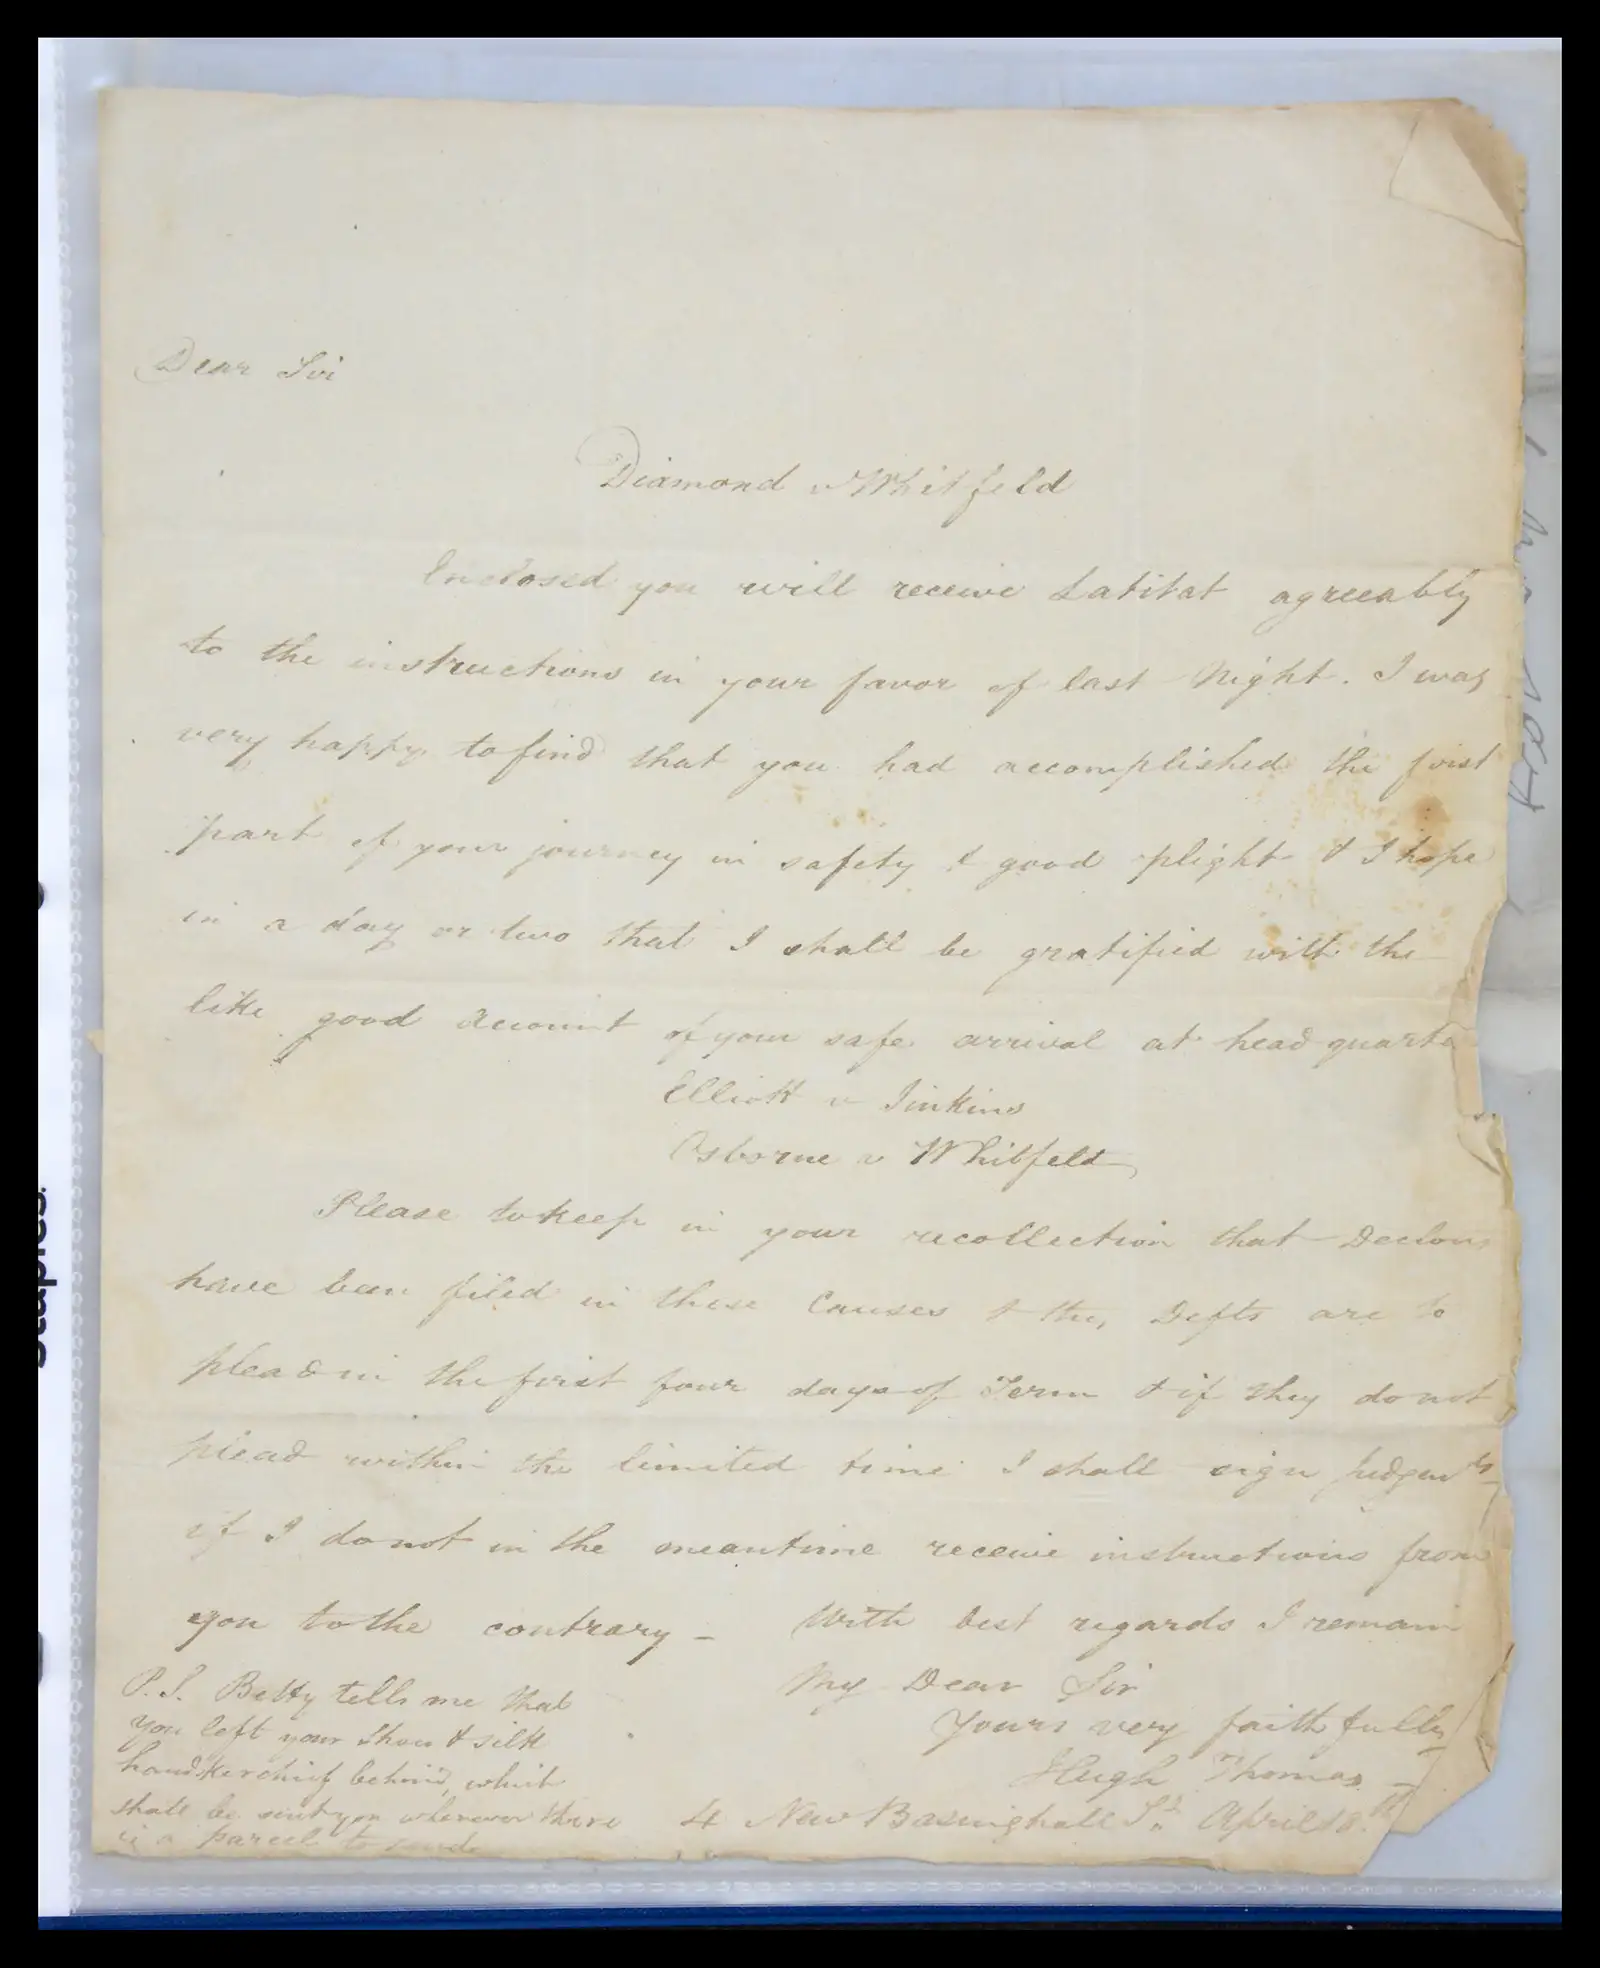 Dear Sir
Diamond v Whitfeld
Enclosed you will receive Latitat agreeably
to the instructions in your favor of last Night. I was
very happy to find that you had accomplished the first
part of your journey in safety & good plight & I hope
in a day or two that I shall be gratified with the
like good account of your safe arrival at head quarte
Elliott v Jinkins
Osborne v Whitfeld
Please to keep in your recollection that Declons
have been filed in these Causes & the Defts are to
plead in the first four days of Term & if they do not
plead within the limited time I shall sign Judgmts
if I do not in the meantime receive instructions from
you to the contrary – With best regards I remain
My Dear Sir
Yours very faithfully
Hugh Thomas –
4 New Basinghall St. April 18th
P.S. Betty tells me that
you left your Shoes & silk
handkerchief behind, which
shall be sent you whenever there
is a parcel to send
Staples.